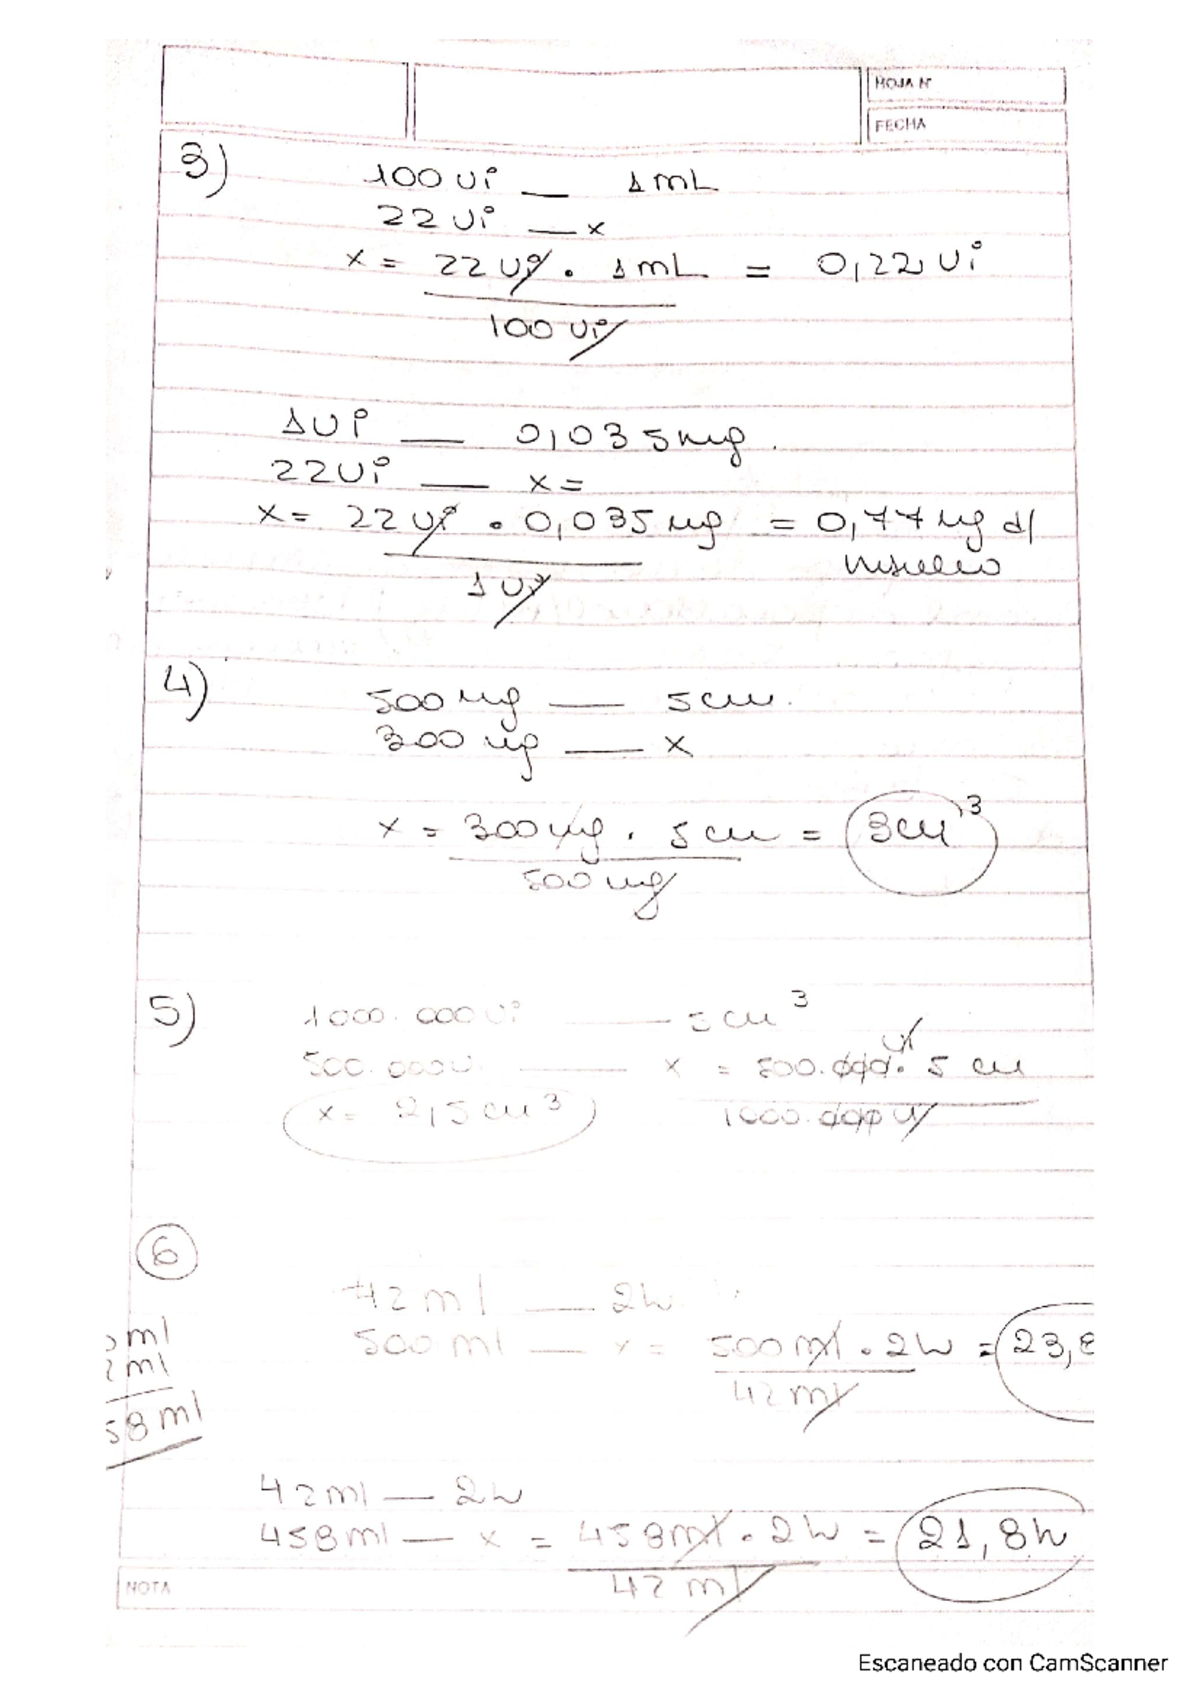 HOJA Nº
FECHA
3)
100 Ui — 1 mL
22 Ui — x
x = 22 Ui . 1 mL = 0,22 Ui
100 Ui
1 Ui — 0,035 mg.
22 Ui — x =
x = 22 Ui . 0,035 mg = 0,77 mg d/
1 Ui
4)
500 mg — 5 cm.
300 mg — x
x = 300 mg . 5 cm = 3 cm³
500 mg
5)
1000.000 Ui — 5 cm³
500.000 U — x = 500.000 Ui . 5 cm
x = 2,5 cm³
1000.000 U
6
42 ml — 2h
500 ml — x = 500 ml . 2h = 23,8
42 ml
ml
2 ml
58 ml
42 ml — 2h
458 ml — x = 458 ml . 2h = 21,8h
42 ml
NOTA
Escaneado con CamScanner